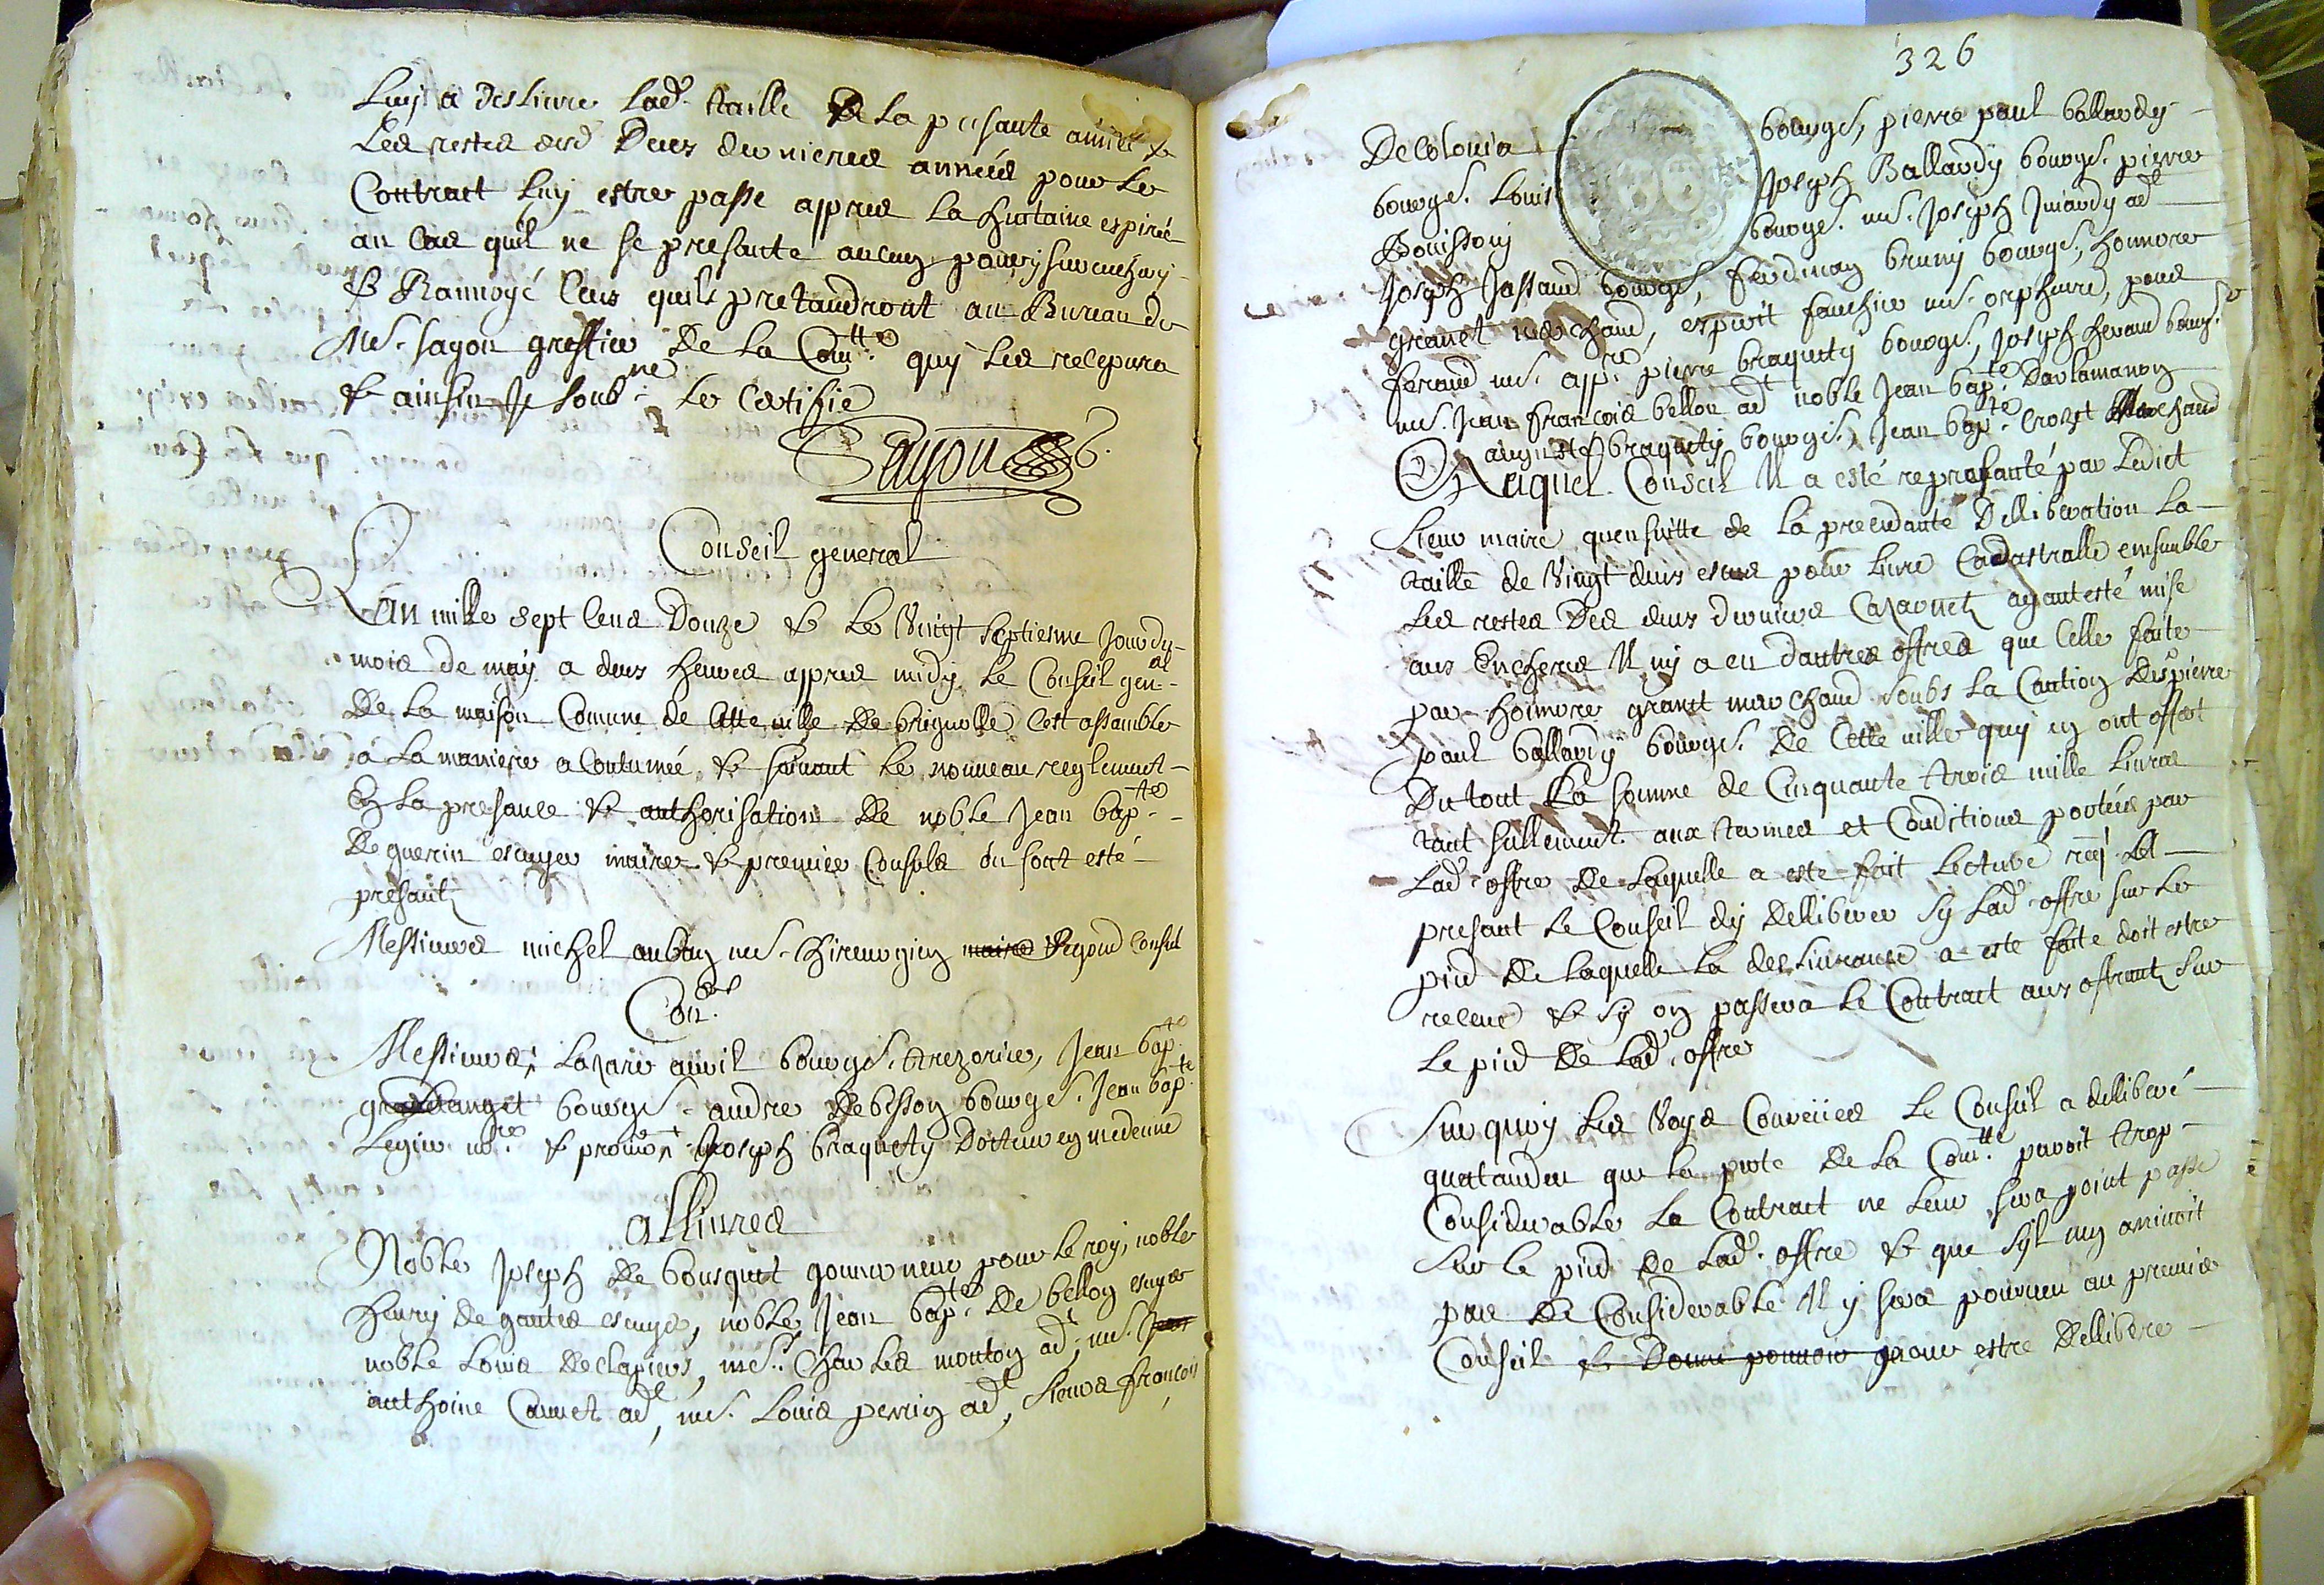 Luy a deslivre lad.e taille de la presante année &
les restes des deux dernieres années pour le
Contract luy estre passe appres la huitaine espirée
au cas quil ne se presante aucun
& Ranvoyé ceux quils pretandront au Bureau de
Me. sayon greffier de la Com.tté quy les recepvra
& ainsin Je soub.ne le Certifie
Sayon G.
Conseil general
L'an mille sept cens Douze & le vingt septiesme Jour du
mois de may a deux heures appres midy le Conseil gen.al
de la maison Comune de Cette ville de brignolle cest assamble
a la maniere acoutumée, & suivant le nouveau reglement
En la presance & authorisation de noble Jean bap.te
de guerin escuyer maire & premier Consuls ou sont esté
presants
Messieurs michel auban me. chirurgien maire segond Consul
Con.ers
Messieurs Lazare bourgs. trezorier, Jean bap.te
bourgs. andre de bisson bourgs. Jean bap.te
Legier no.re & Joseph braquety Docteur en medecine
allivres
Noble Joseph de bousquet gouverneur pour le roy, noble
henry de gantes escuyer, noble Jean bap.te de bellon escuyer
noble Louis de clapiers, me. Charles mouton ad.t, me. Jean
anthoine Cannet ad.t, me. Louis perrin ad.t, Sieurs francois
326
De Colonia bourgs, pierre paul ballardy
bourgs. Louis Joseph Ballardy bourgs. pierre
Bouisson bourgs. me. Joseph Jnardy ad.t
Joseph Jassaud bourgs, ferdinan bruny bourgs, honnore
granet marchand, esprit fauchier me. orphevre, pons
feraud me. app.re pierre braquety bourgs, Joseph heraud bourgs.
me. Jean francois bellon ad.t noble Jean bap.te Darlamanon
augustte braquety bourgs, Jean bap.te Crozet Marchand
Auquel Conseil Il a esté represanté par Ledict
Sieur maire quensuitte de la precedante Dellibération la
taille de vingt deux escus pour livre Cadastralle ensamble
les restes des deux derniers Cazernets ayant esté mise
aux Encheres Il ny a eu dautres offres que celle faite
par honnore granet marchand soubs la Caution de sr pierre
paul ballardy bourgs. de Cette ville quy en ont offert
Du tout la somme de Cinquante trois mille livres
tant sullement aux termes et Conditions portées par
Lad.e offre de laquelle a este fait lecture
presant le Conseil dy Delliberer sy Lad.e offre sur le
pied de laquelle la deslivrance a este faite doit estre
receue & sy on passera le Contract aux offrants sur
le pied de Lad.e offre
Sur quoy les voys Couruees le Conseil a delliberé
quatandeu que la perte de la Com.tté paroit trop
Considerable le Contract ne leur sera point passe
sur le pied de Lad.e offre & que syl nen arrivoit
pas de Considerable Il y sera pourveu au premier
Conseil & Donne pouvoir pour estre Dellibere